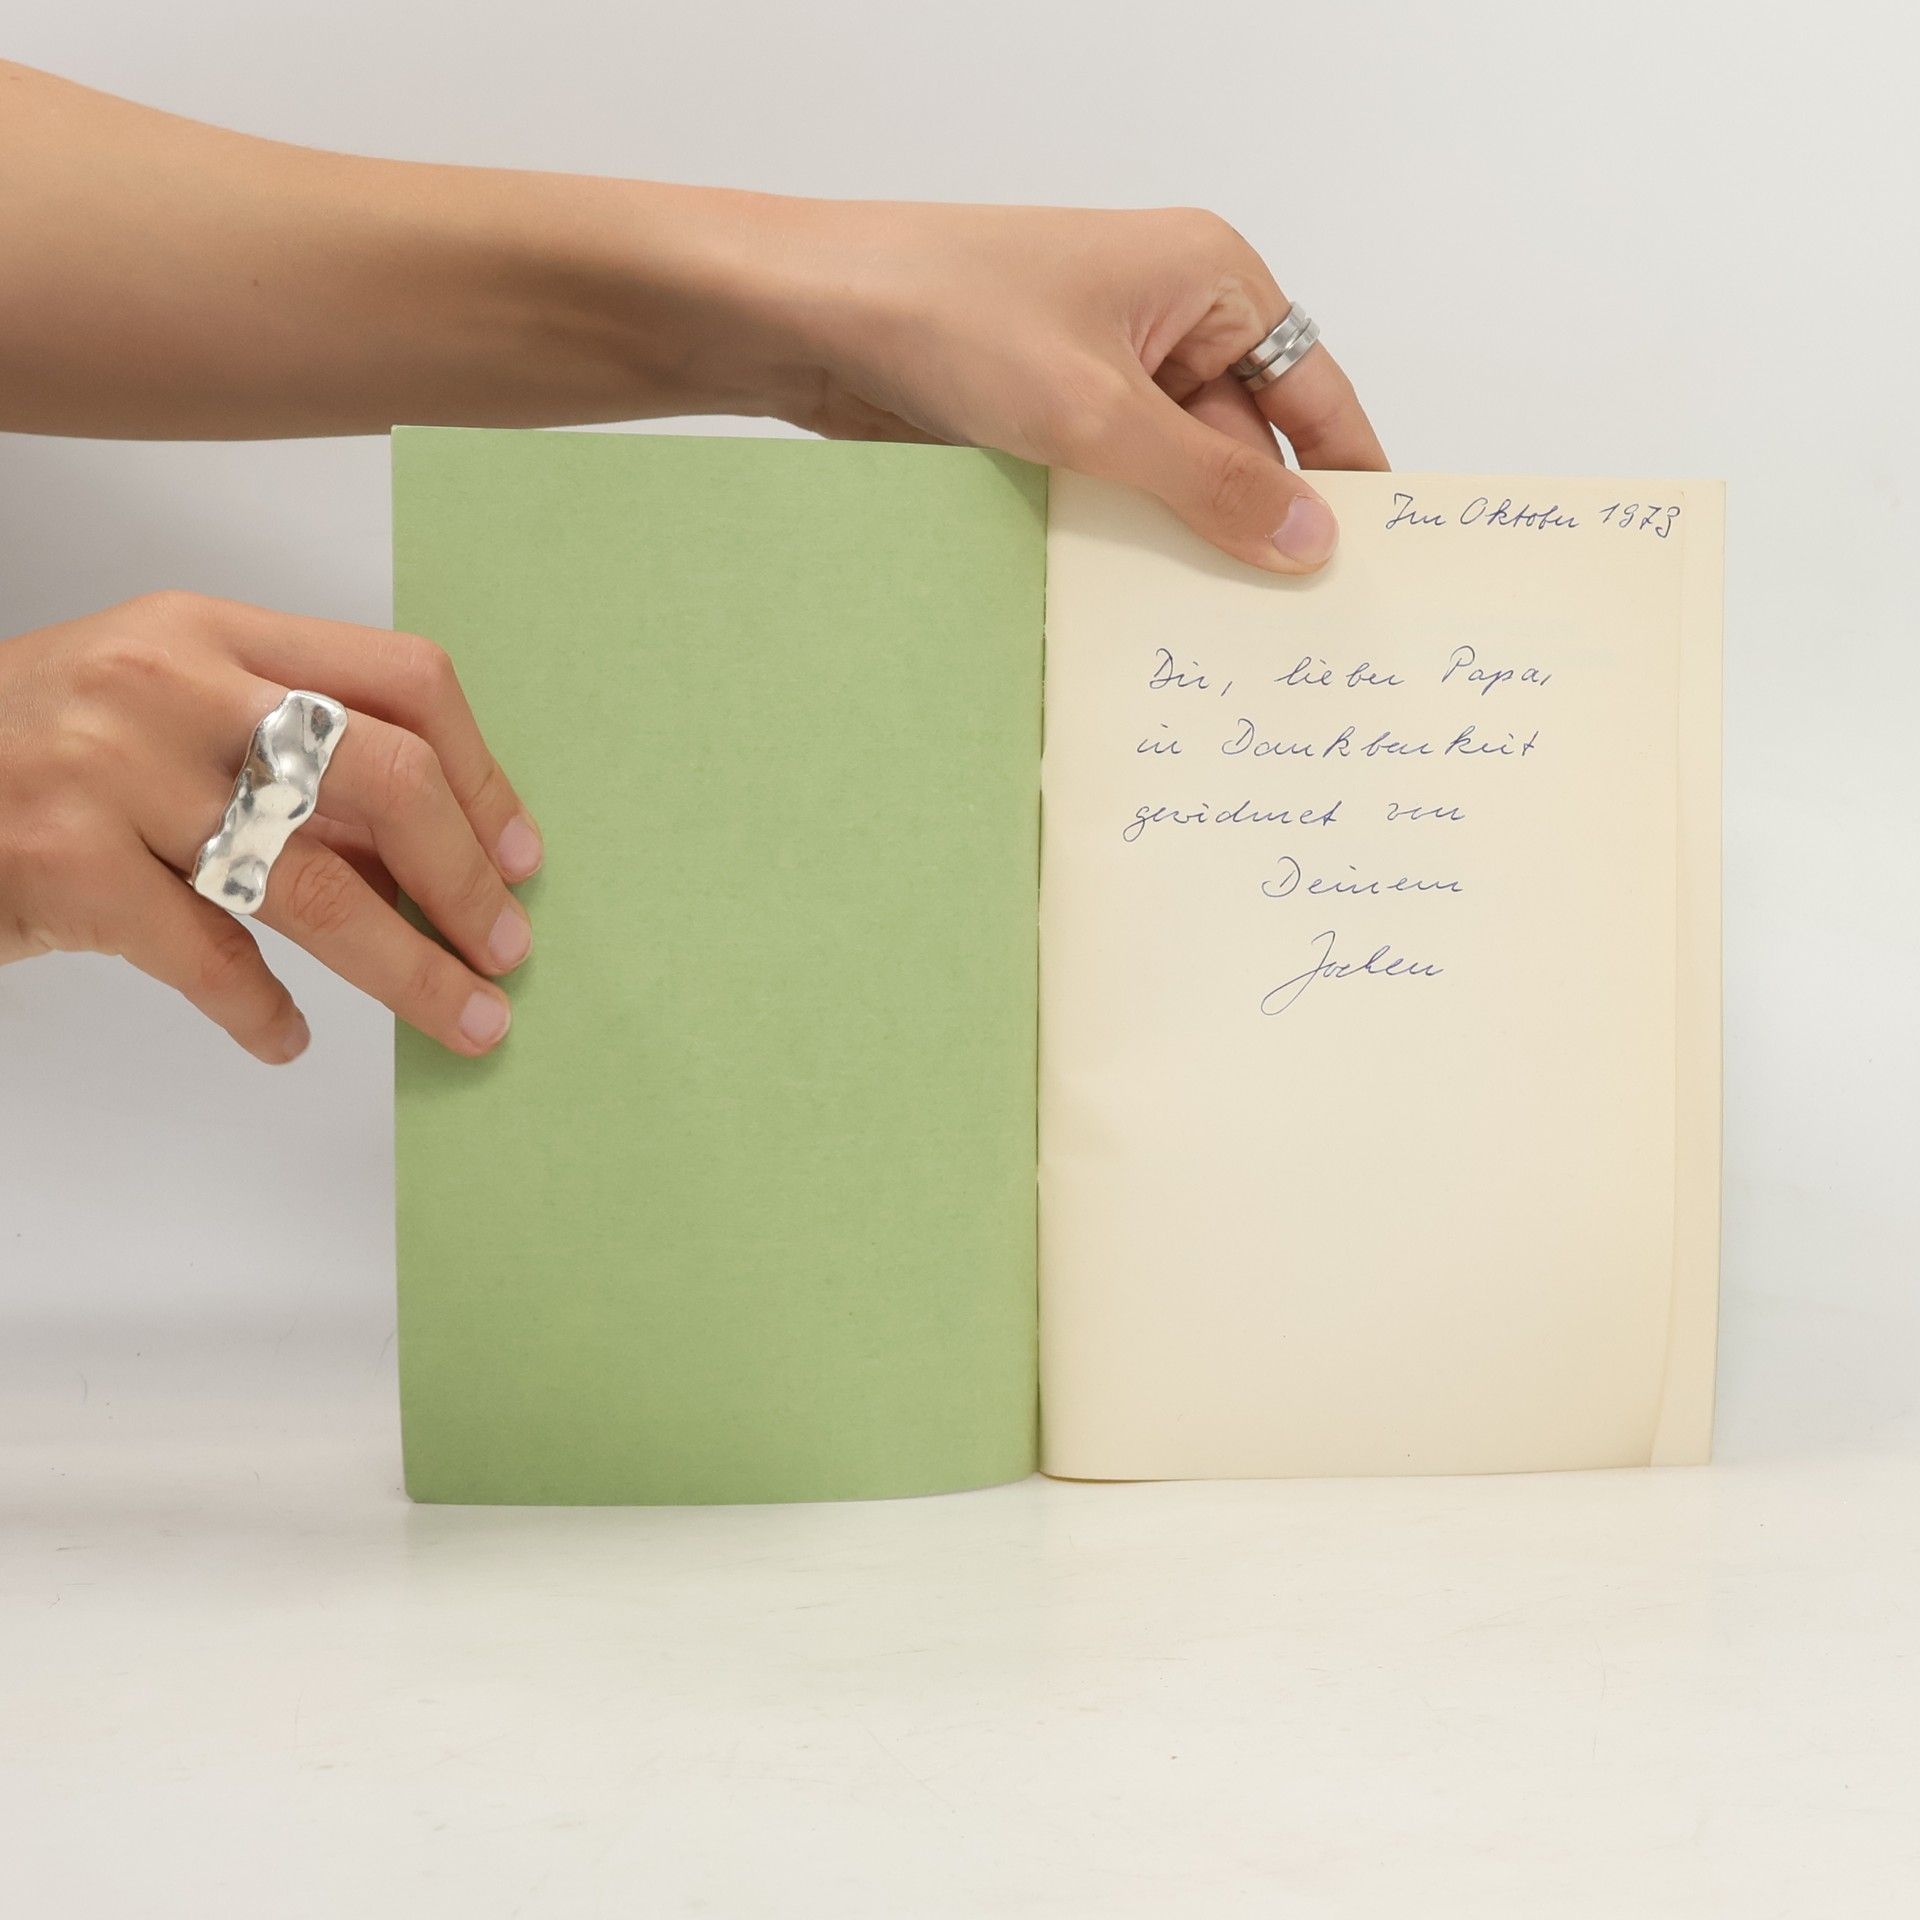 Im Oktober 1973
Dir, lieber Papa,
in Dankbarkeit
gewidmet von
Deinem
Jochen